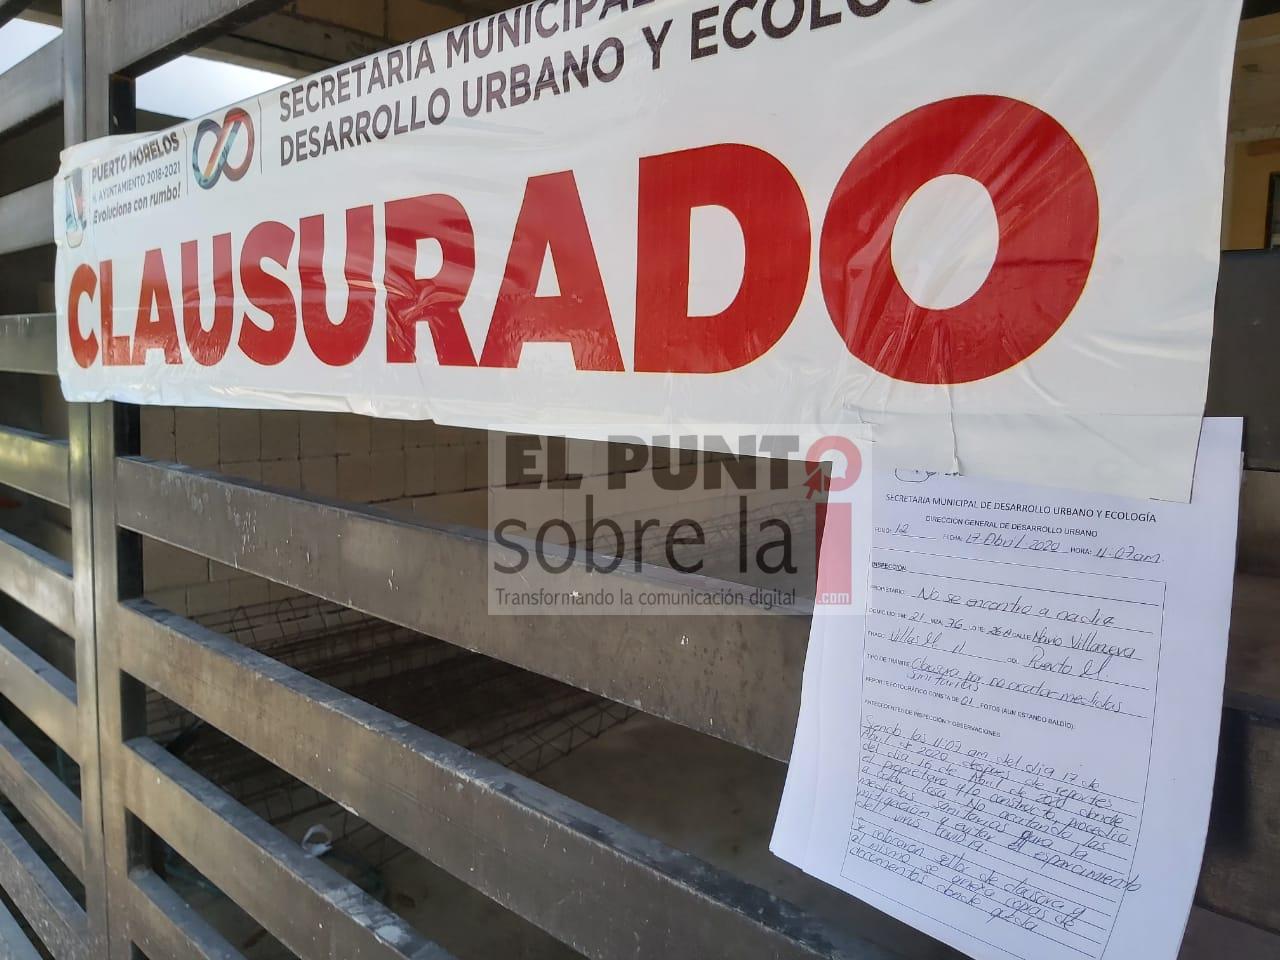 SECRETARÍA MUNICIPAL
DESARROLLO URBANO Y ECOLOG
PUERTO MORELOS
H. AYUNTAMIENTO 2018-2021
Evoluciona con rumbo!
CLAUSURADO
EL PUNTO
sobre la i
.com
Transformando la comunicación digital
SECRETARIA MUNICIPAL DE DESARROLLO URBANO Y ECOLOGÍA
DIRECCIÓN GENERAL DE DESARROLLO URBANO
FOLIO: 12 FECHA: 17-Abril-2020 HORA: 11:07am.
INSPECCIÓN
PROPIETARIO: No se encontro a nadie
21 MZA: 76 LOTE: CALLE: Villanueva
FRACC: Villas M. II Puerto M.
TIPO DE TRÁMITE: Clausura por no acatar medidas
sanitarias
REPORTE FOTOGRÁFICO CONSTA DE 01 FOTOS (AUN ESTANDO BALDÍO):
ANTECEDENTES DE INSPECCIÓN Y OBSERVACIONES:
Siendo las 11:07 am del dia 17 de
Abril de 2020 despues de reportes
del dia 16 de Abril de 2020 donde
el propietario y/o constructor procedia
a colar losa. No acatando las
medidas sanitarias para la
mitigacion y evitar el esparcimiento
del virus Covid19.
Se colocaron sellos de clausura y
al mismo se anexa copias de
documentos donde queda